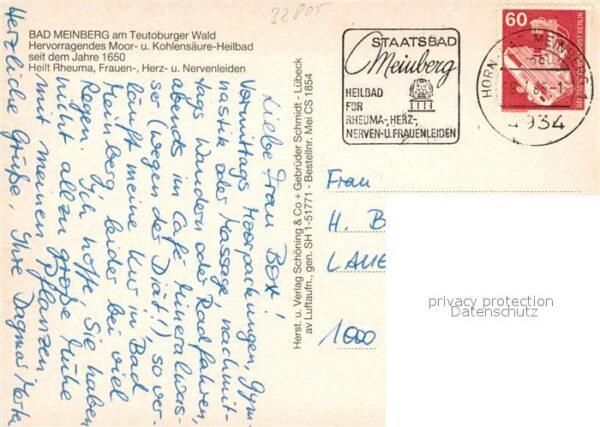 32805
BAD MEINBERG am Teutoburger Wald
Hervorragendes Moor- u. Kohlensäure-Heilbad
seit dem Jahre 1650
Heilt Rheuma, Frauen-, Herz- u. Nervenleiden
Liebe Frau Box!
Vormittags Moorpackungen, Gym-
nastik oder Massage, nachmit-
tags Wandern oder Radfahren,
abends im Café Mineralwas-
ser (wegen der Diät!), so ver-
läuft meine Kur in Bad
Meinberg, leider bei viel
Regen. Ich hoffe, Sie haben
nicht allzu große Mühe
mit meinen Pflanzen.
Herzliche Grüße, Ihre Dagmar
Herst. u. Verlag Schöning & Co + Gebrüder Schmidt - Lübeck
av Luftaufn., gen. SH 1-51771 - Bestellnr. Mei CS 1854
STAATSBAD
Meinberg
HEILBAD
FÜR
RHEUMA-, HERZ-,
NERVEN- U. FRAUENLEIDEN
HORN-BAD MEINB
4934
60
DEUTSCHE BUNDESPOST BERLIN
Frau
H. B
LAUE
1000
privacy protection
Datenschutz